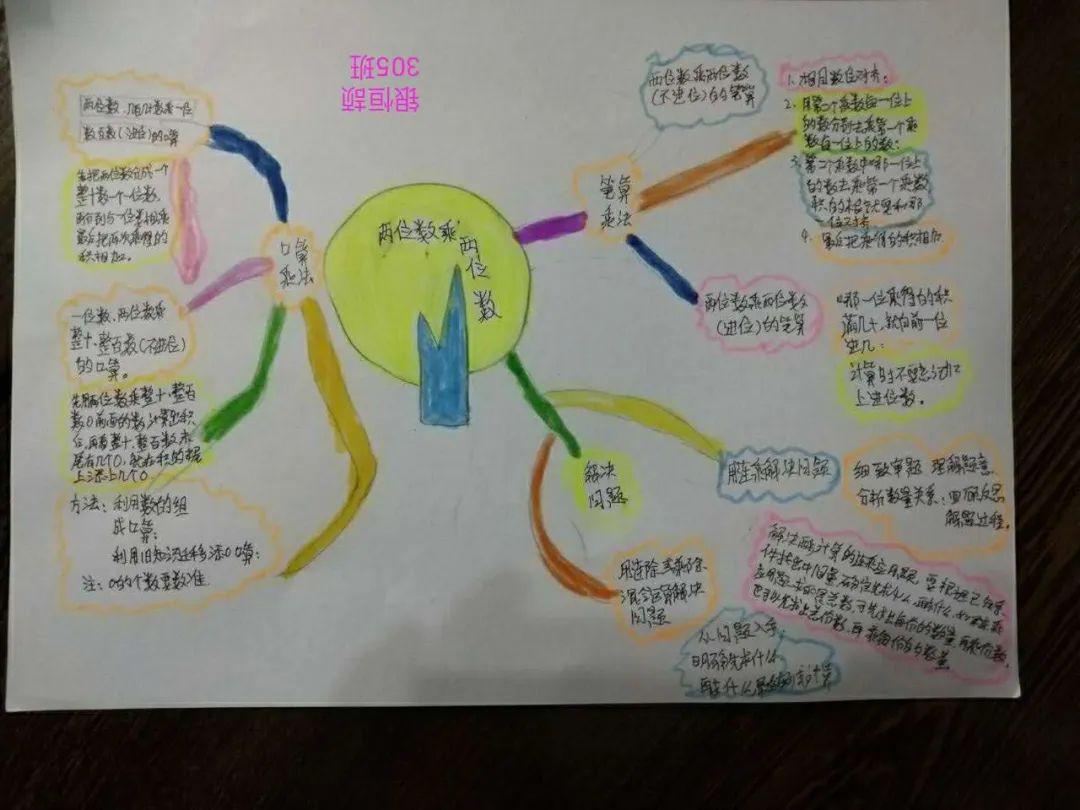 305班
银恒颉
两位数乘
两位数
口算
乘法
两位数、几百几十数乘一位
数(进位)的口算
先把两位数分成一个
整十数一个一位数,
再分别与一位数相乘
最后把两次乘得的
积相加。
一位数、两位数乘
整十、整百数(不进位)
的口算。
先用两位数乘整十、整百
数0前面的数,计算出积
后,再看整十、整百数末
尾有几个0,就在积的末尾
上添上几个0
方法:利用数的组
成口算;
利用旧知识迁移添0口算;
注:0的个数要数准
笔算
乘法
两位数乘两位数
(不进位)的笔算
1.相同数位对齐;
2.用第二个乘数每一位上
的数分别去乘第一个乘
数每一位上的数;
3.第二个乘数中哪一位上
的数去乘第一个乘数
积的末位就要和那
一位对齐
4.最后把乘得的积相加
两位数乘两位数
(进位)的笔算
哪一位乘得的积
满几十,就向前一位
进几;
计算时不要忘记加
上进位数。
解决
问题
用连乘解决问题
细致审题 理解题意
分析数量关系;回顾反思
解题过程。
解决两步计算的连乘应用题,要根据已知条
再乘每份的数量
用连除或乘除
混合运算解决
问题
从问题入手
明确先求什么
再求什么